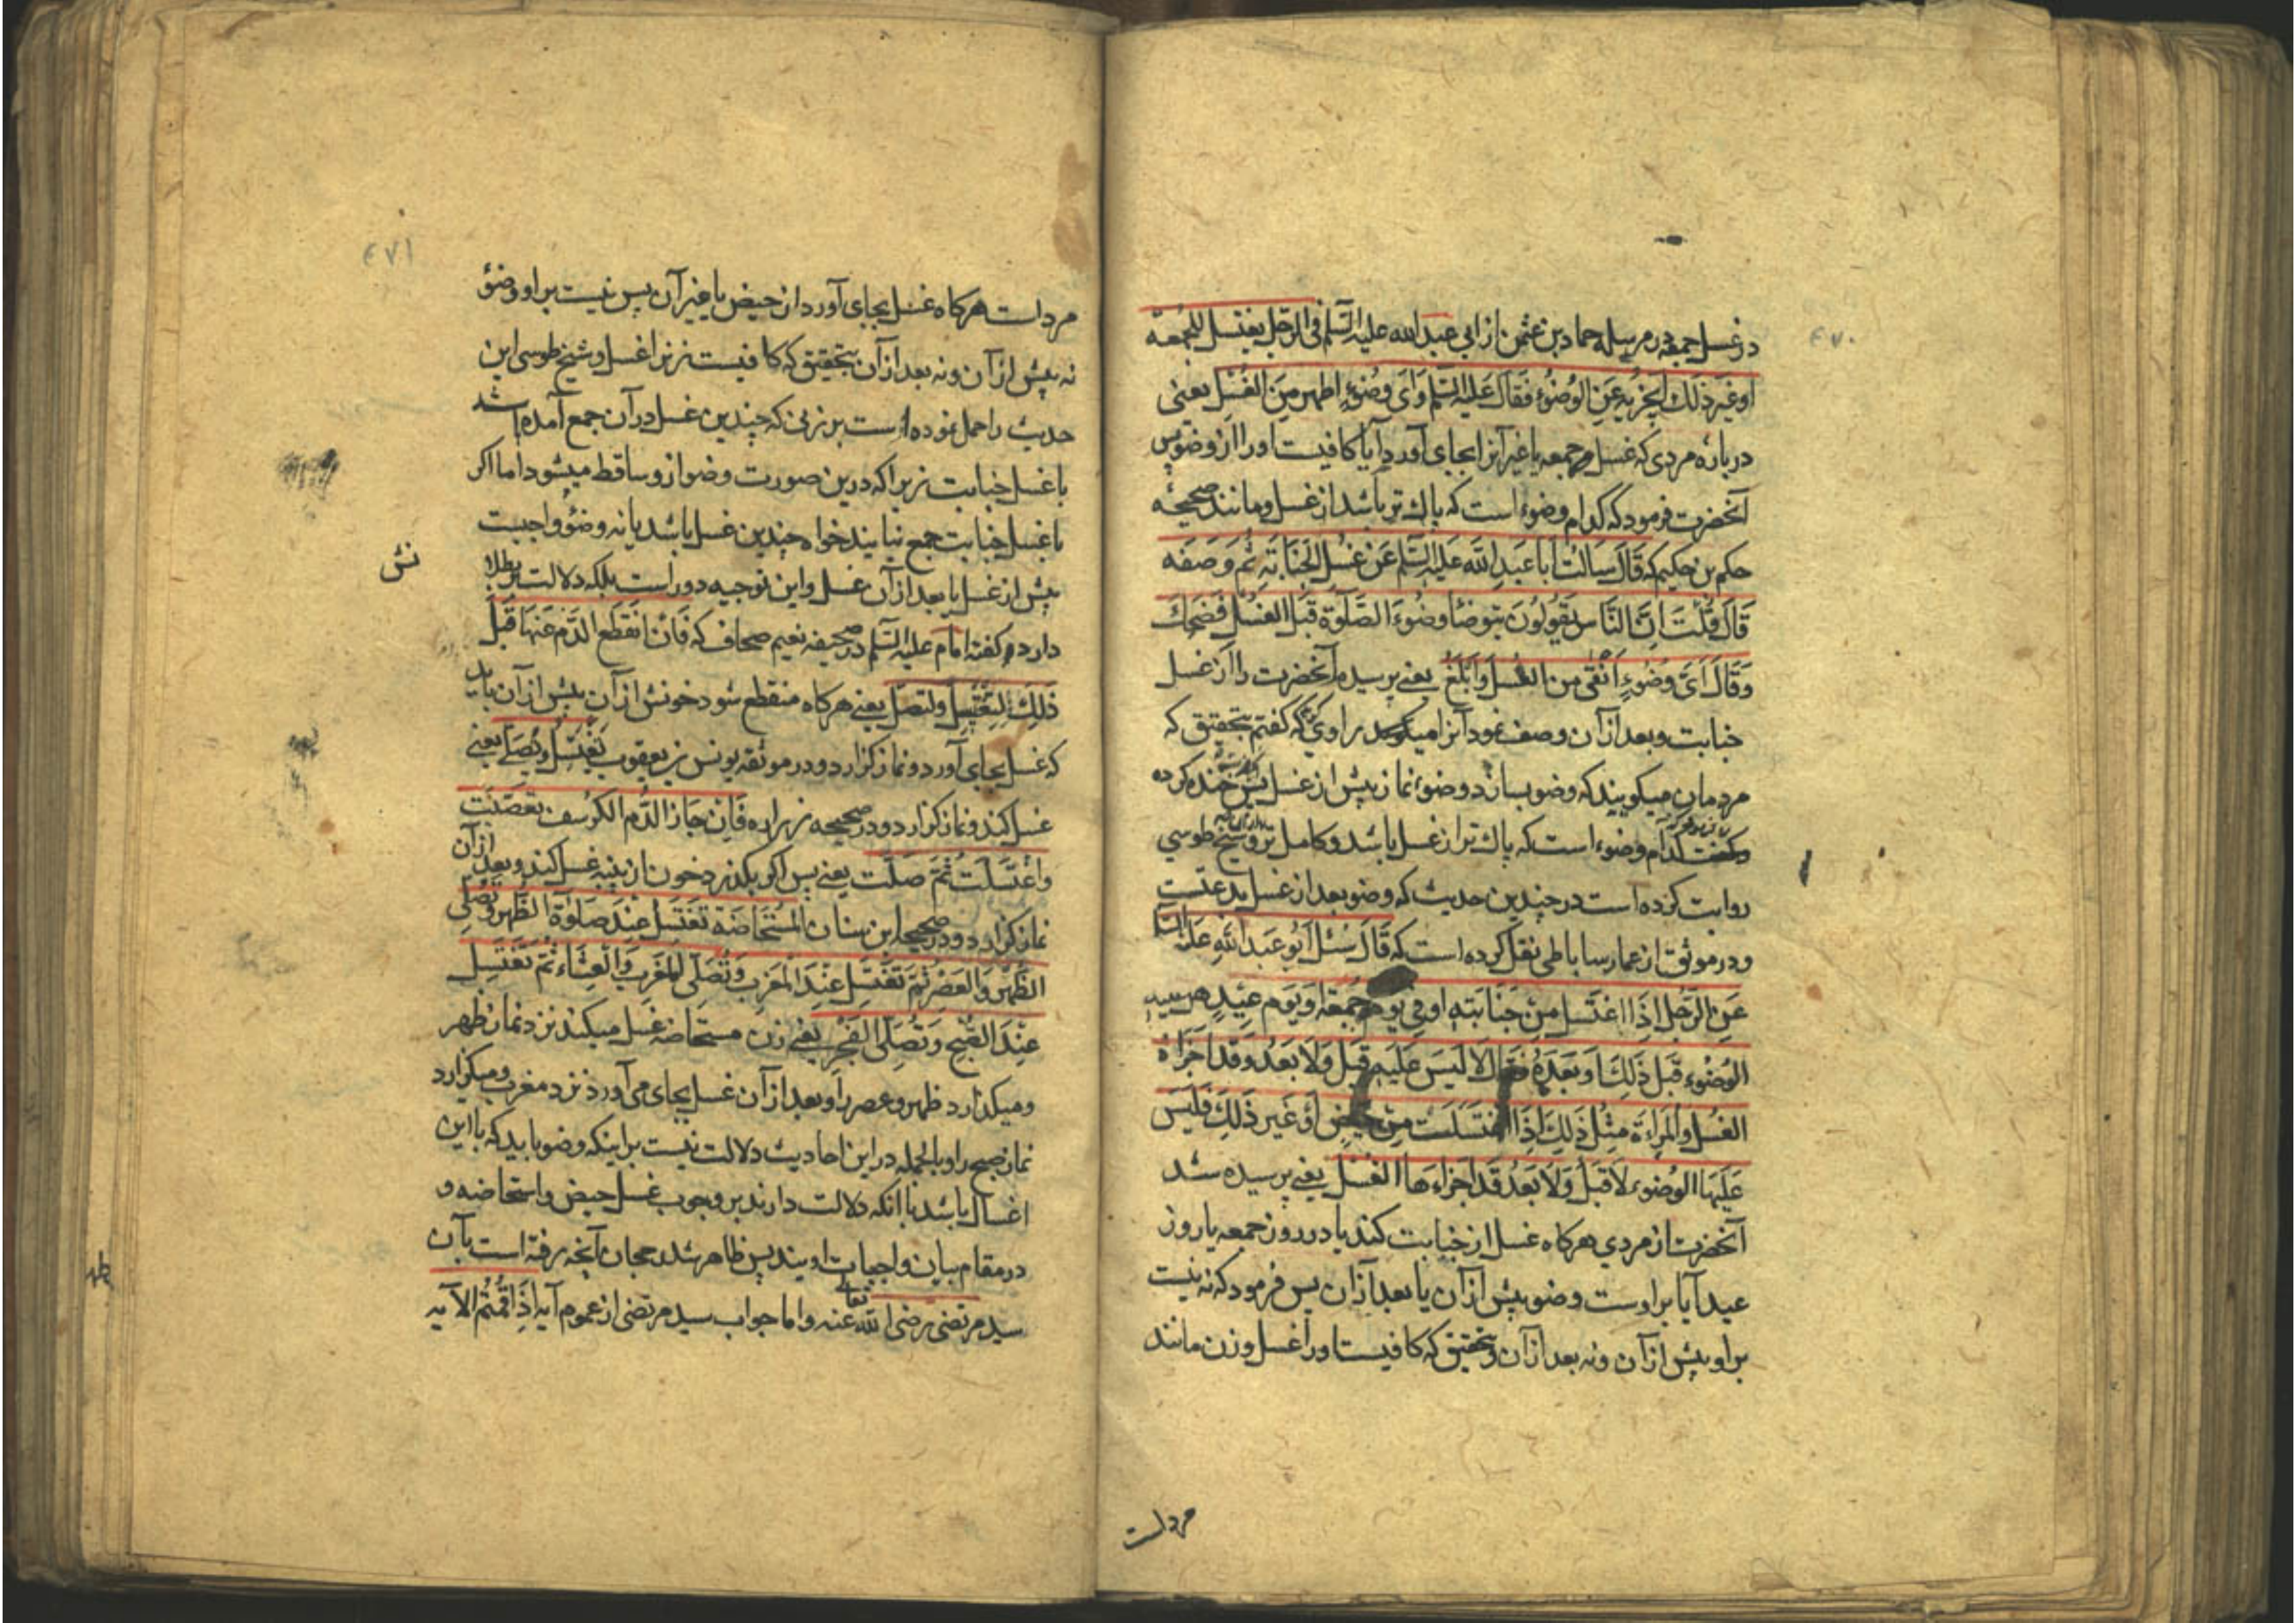 ۴۷۰
در غسل جمعه در مرسله حماد بن عثمن از ابی عبد الله علیه السلم فی الرجل یغتسل للجمعة
او غیر ذلک ایجزیه عن الوضوء فقال علیه السلم وای وضوء اطهر من الغسل یعنی
درباره مردی که غسل جمعه یا غیر آنرا بجای آورد آیا کافیست اورا از وضو پس
آنحضرت فرمود که کدام وضوء است که پاک تر باشد از غسل و مانند صحیحه
حکم بن حکیم که قال سالت ابا عبد الله علیه السلم عن غسل الجنابة ثم وصفه
قال قلت ان الناس یقولون یتوضا وضوء الصلوة قبل الغسل فضحک
وقال ای وضوء انقی من الغسل وابلغ یعنی پرسیدم آنحضرت را از غسل
جنابت و بعد از آن وصف نمود آنرا راوی که گفتم بتحقیق که
مردمان میکویند که وضو بسازد وضوء نماز پیش از غسل پس خنده کرده
کدام وضوء است که پاک تر از غسل باشد و کامل تر و شیخ طوسی
روایت کرده است در چندین حدیث که وضو بعد از غسل بدعتست
و در موثق از عمار ساباطی نقل کرده است که قال سئل ابو عبد الله علیه السلم
عن الرجل اذا اغتسل من جنابته او فی یوم جمعة او یوم عید هل علیه
الوضوء قبل ذلک او بعده فقال لا لیس علیه قبل ولا بعد وقد اجزاه
الغسل والمراءة مثل ذلک اذا اغتسلت من حیض او غیر ذلک فلیس
علیها الوضوء لا قبل ولا بعد قد اجزاءها الغسل یعنی پرسیده شد
آنحضرت از مردی هرکاه غسل از جنابت کند یا در روز جمعه یا روز
عید آیا بر اوست وضو پیش از آن یا بعد از ان پس فرمود که نه نیست
بر او پیش از آن و نه بعد از آن و بتحقیق که کافیست اورا غسل و زن مانند
مرد است
۴۷۱
مرد است هرکاه غسل بجای آورد از حیض یا غیر آن پس نیست بر او وضوء
نه پیش از آن و نه بعد از آن بتحقیق که کافیست زنرا غسل و شیخ طوسی این
حدیث را حمل نموده است بر زنی که چندین غسل در آن جمع آمده باشد
با غسل جنابت زیرا که درین صورت وضو از و ساقط میشود اما اکر
با غسل جنابت جمع نیایند خواه چندین غسل باشد یا نه وضوء واجبست
پیش از غسل یا بعد از آن غسل و این توجیه دور است بلکه دلالت بر بطلا
نش
دارد کفته امام علیه السلم در صحیفه نعیم صحاف که فان انقطع الدم عنها قبل
ذلک فلتغتسل ولتصل یعنی هرکاه منقطع شود خونش از آن پیش از آن باید
که غسل بجای آورد و نماز کزارد و در موثقه یونس بن یعقوب تغتسل وتصلی یعنی
غسل کند و نماز کزارد و در صحیحه زراره فان جاز الدم الکرسف تعصبت
واغتسلت ثم صلت یعنی پس اکر بکذرد خون از پنبه غسل کند و بعد از آن
نماز کزارد و در صحیحه ابن سنان المستحاضة تغتسل عند صلوة الظهر وتصلی
الظهر والعصر ثم تغتسل عند المغرب وتصلی المغرب والعشاء ثم تغتسل
عند الصبح وتصلی الفجر یعنی زن مستحاضه غسل میکند نزد نماز ظهر
ومیکذارد ظهر و عصر را و بعد از آن غسل بجای می آورد نزد مغرب ومیکزارد
نماز صبح را و بالجمله در این احادیث دلالت نیست بر اینکه وضو باید که با این
اغسال باشد با آنکه دلالت دارند بر وجوب غسل حیض و استحاضه و
در مقام بیان واجبات اویند پس ظاهر شد رجحان آنچه رفته است بآن
سید مرتضی رضی الله تعالی عنه و اما جواب سید مرتضی از عموم آیه اذا قمتم الآیه